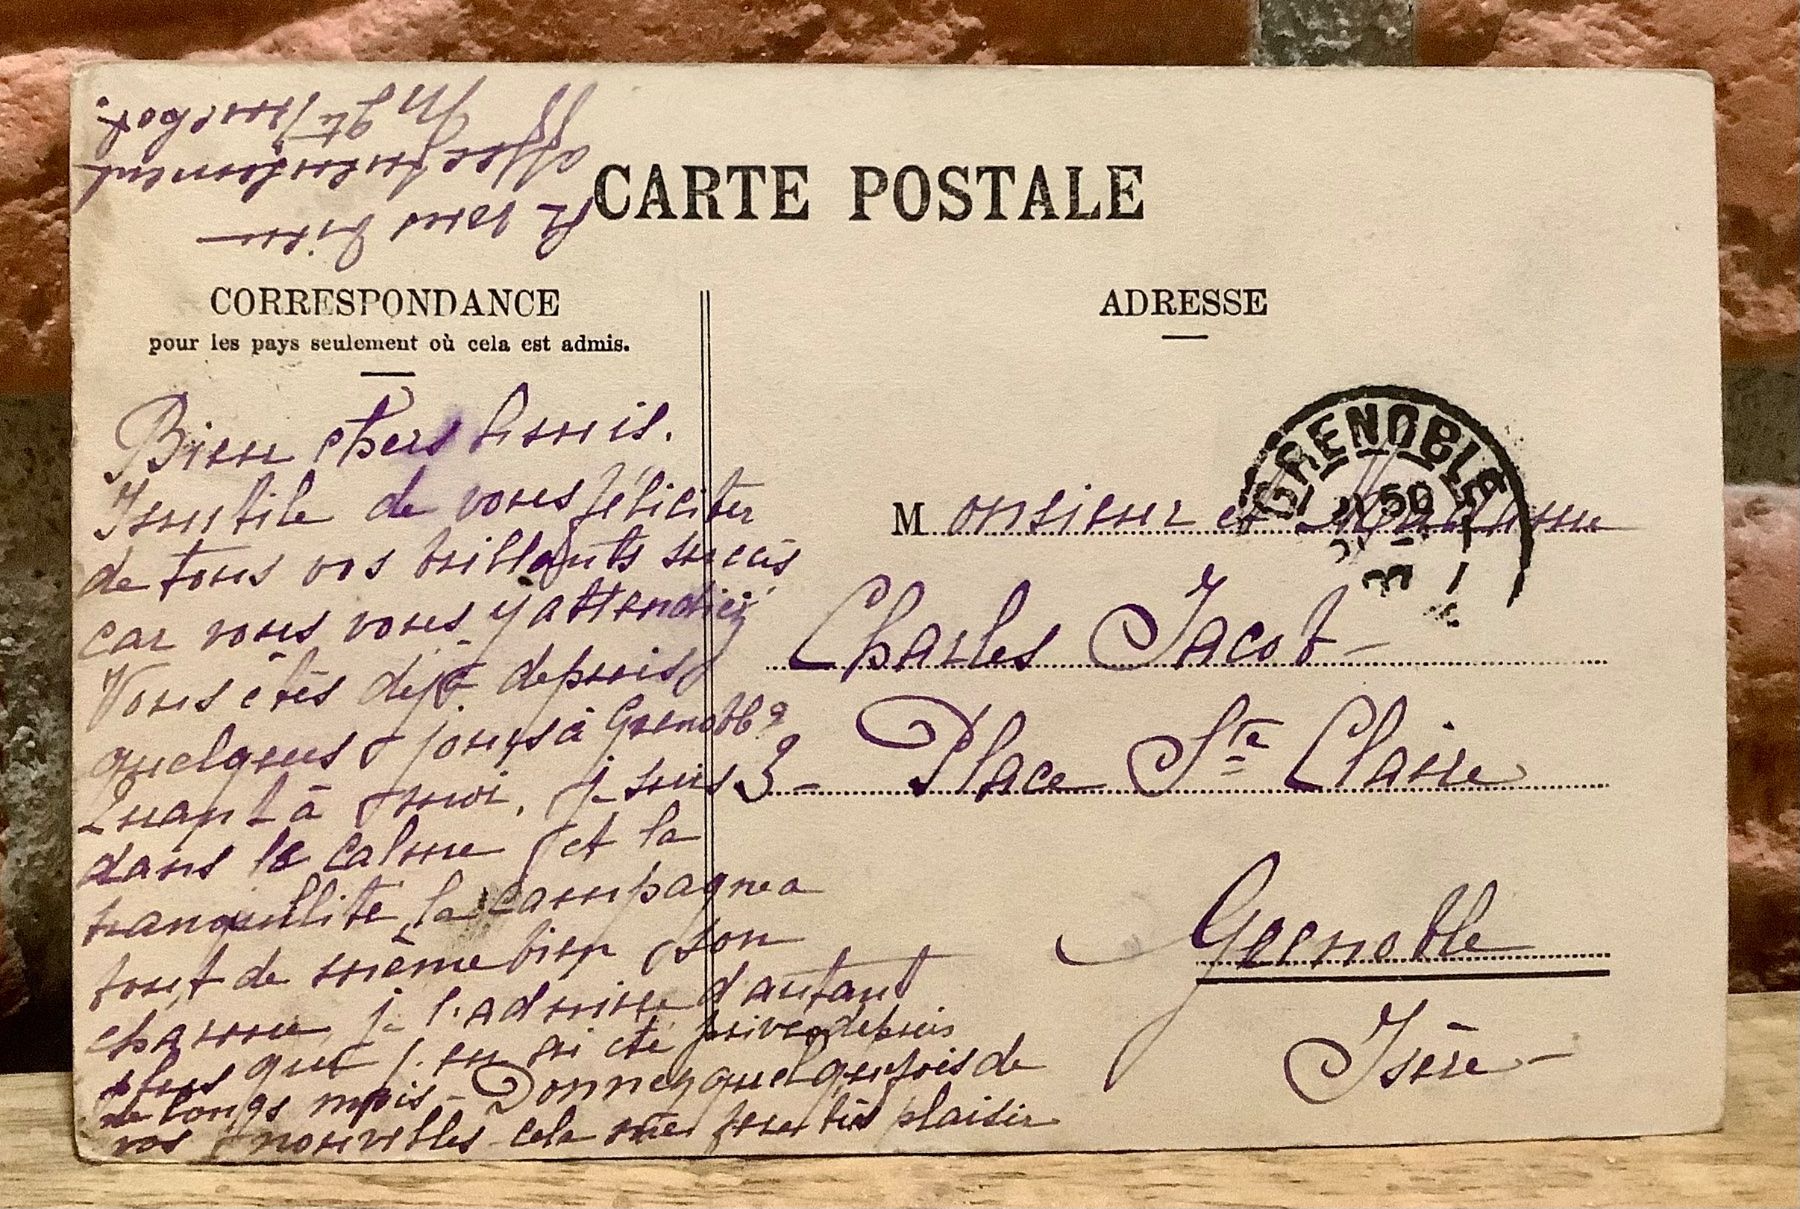 CARTE POSTALE
CORRESPONDANCE
pour les pays seulement où cela est admis.
ADRESSE
Bien chers Amis.
Inutile de vous féliciter
de tous vos brillants succès
car vous vous y attendiez
Vous êtes déjà depuis
quelques jours à Grenoble
Quant à moi, je suis
dans le calme et la
tranquillité, la campagne a
tout de même bien son
charme, je l'admire d'autant
plus que j'en ai été privée depuis
de longs mois - Donnez quelquefois de
vos nouvelles cela me fera très plaisir
A vous bien
affectueusement
Mgte
GRENOBLE
50
Monsieur et Madame
Charles Jacot
3 - Place Ste Claire
Grenoble
Isère